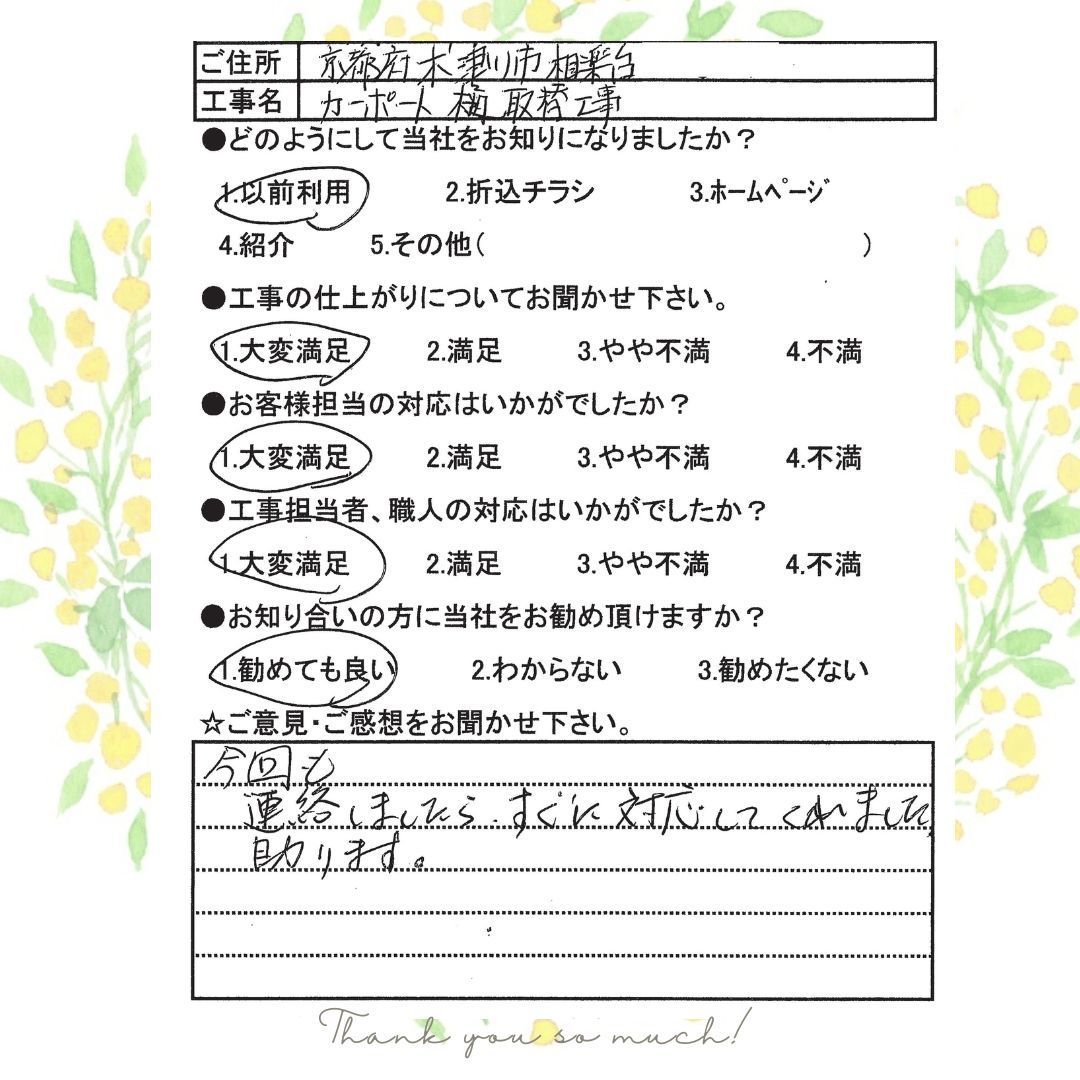 ご住所 京都府木津川市相楽台
工事名 カーポート樋取替工事
●どのようにして当社をお知りになりましたか？
1.以前利用 2.折込チラシ 3.ﾎｰﾑﾍﾟｰｼﾞ
4.紹介 5.その他( )
●工事の仕上がりについてお聞かせ下さい。
1.大変満足 2.満足 3.やや不満 4.不満
●お客様担当の対応はいかがでしたか？
1.大変満足 2.満足 3.やや不満 4.不満
●工事担当者、職人の対応はいかがでしたか？
1.大変満足 2.満足 3.やや不満 4.不満
●お知り合いの方に当社をお勧め頂けますか？
1.勧めても良い 2.わからない 3.勧めたくない
☆ご意見・ご感想をお聞かせ下さい。
今回も
連絡しましたら、すぐに対応してくれました。
助ります。
Thank you so much!